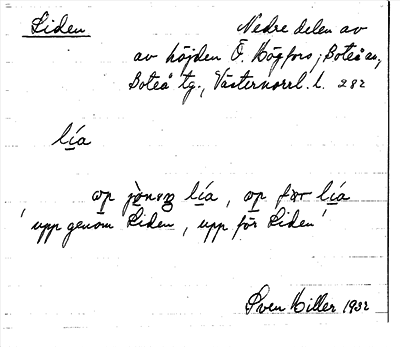 Liden
Nedre delen av
av höjden Ö. Högfors, Boteå sn,
Boteå tg., Västernorrl. l. 282
lía
op lía, op før lía
'upp genom Liden, upp för Liden'
Sven Hiller 1932